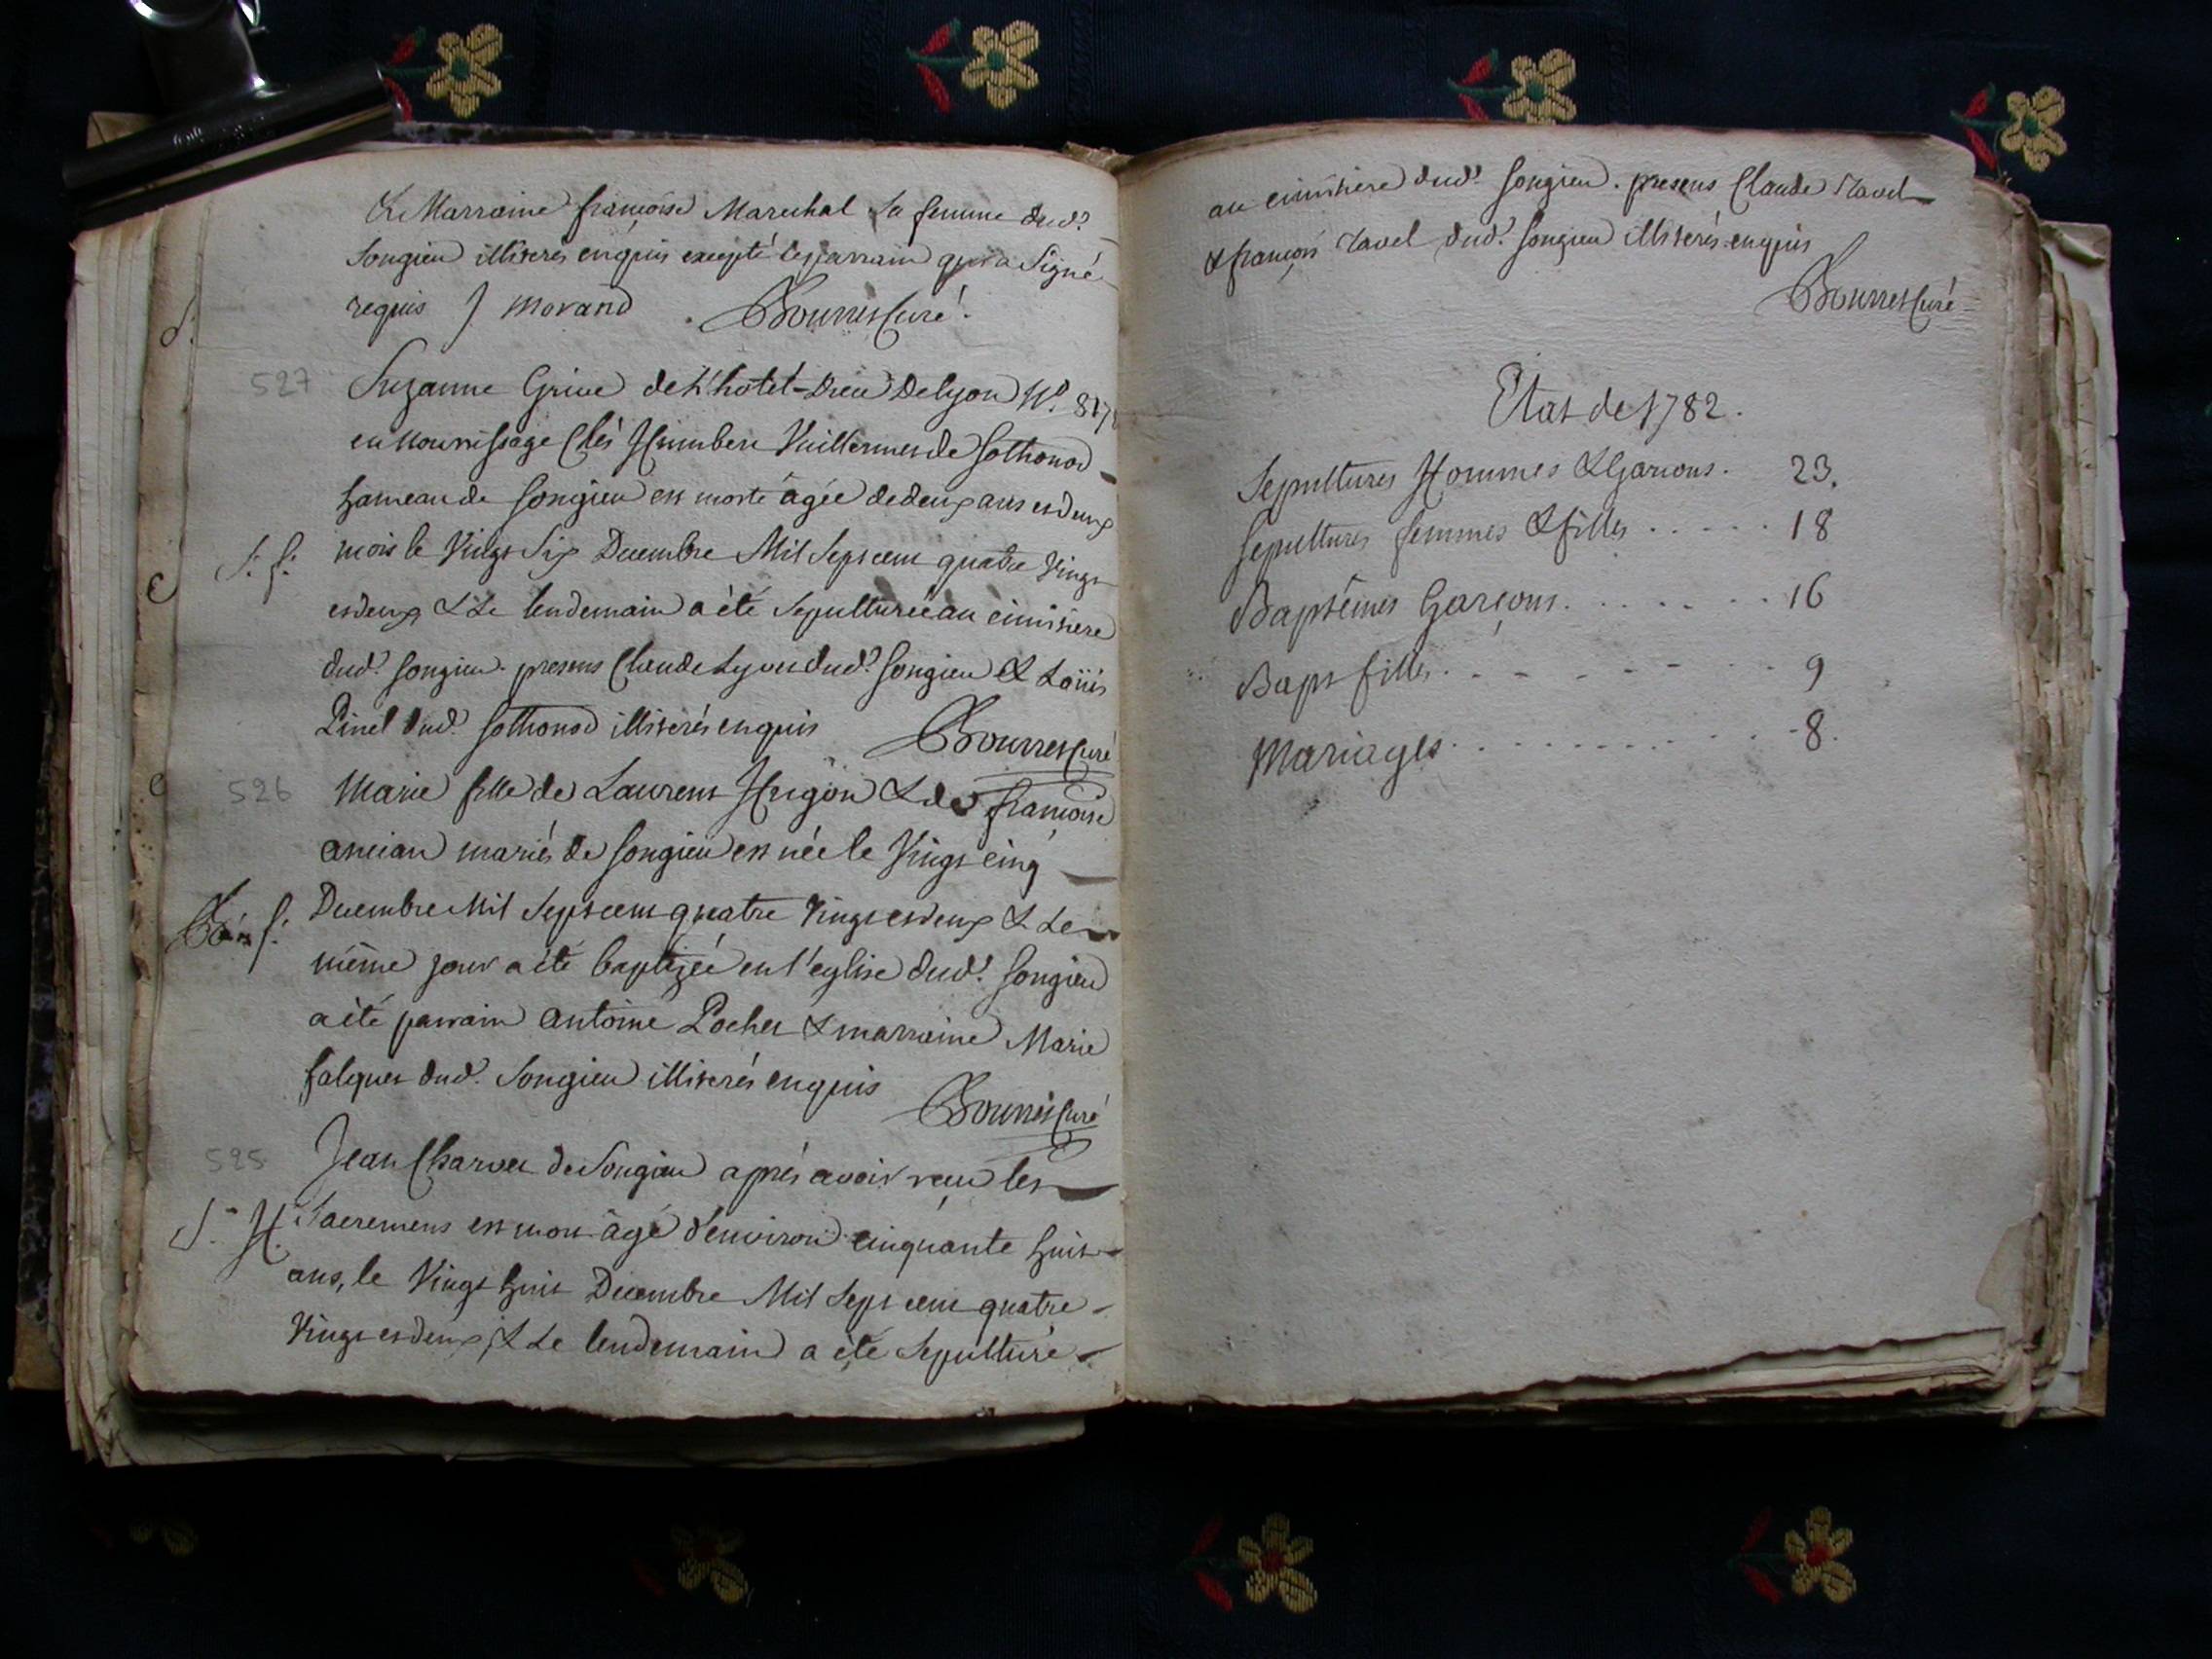 & Marraine françoise Marechal sa femme dud.t
Songieu illiterés enquis excepté le parrain qui a Signé
requis J morand Bourret Curé.
527 Suzanne Grive de L'hotel-Dieu De lyon N.o 817
en nourrissage chés Humbert Vuillermet de Sothonod
hameau de Songieu est morte âgée de deux ans et deux
S. f. mois le Vingt Six Decembre Mil Sept cent quatre Vingt
et deux & Le lendemain a été Sepulturée au cimitiere
dud.t Songieu. presens Claude Lyvet dud.t Songieu & Loüis
Pinel dud.t Sothonod illiterés enquis Bourret Curé
526 Marie fille de Laurent Hugon & de françoise
ancian mariés de Songieu est née le Vingt cinq
B. f. Decembre Mil Sept cent quatre Vingt et deux & Le
même jour a été baptizée en l'eglise dud.t Songieu
a été parrain antoine Pochet & marraine Marie
falquet dud.t Songieu illiterés enquis
Bourret Curé
525 Jean Charvet de Songieu aprés avoir reçu les
S. H. Sacremens est mort âgé d'environ cinquante huit
ans, le Vingt huit Decembre Mil Sept cent quatre
Vingt et deux, & Le lendemain a été Sepulturé
au cimitiere dud.t Songieu. presens Claude Tavel
& françois Tavel dud.t Songieu illiterés enquis
Bourret Curé
Etat de 1782.
Sepultures Hommes & Garçons. 23.
Sepultures femmes & filles . . . . . 18
Baptêmes Garçons. . . . . . . . 16
Bapt filles . . . . . . . . 9
Mariages . . . . . . . . . . . . 8.